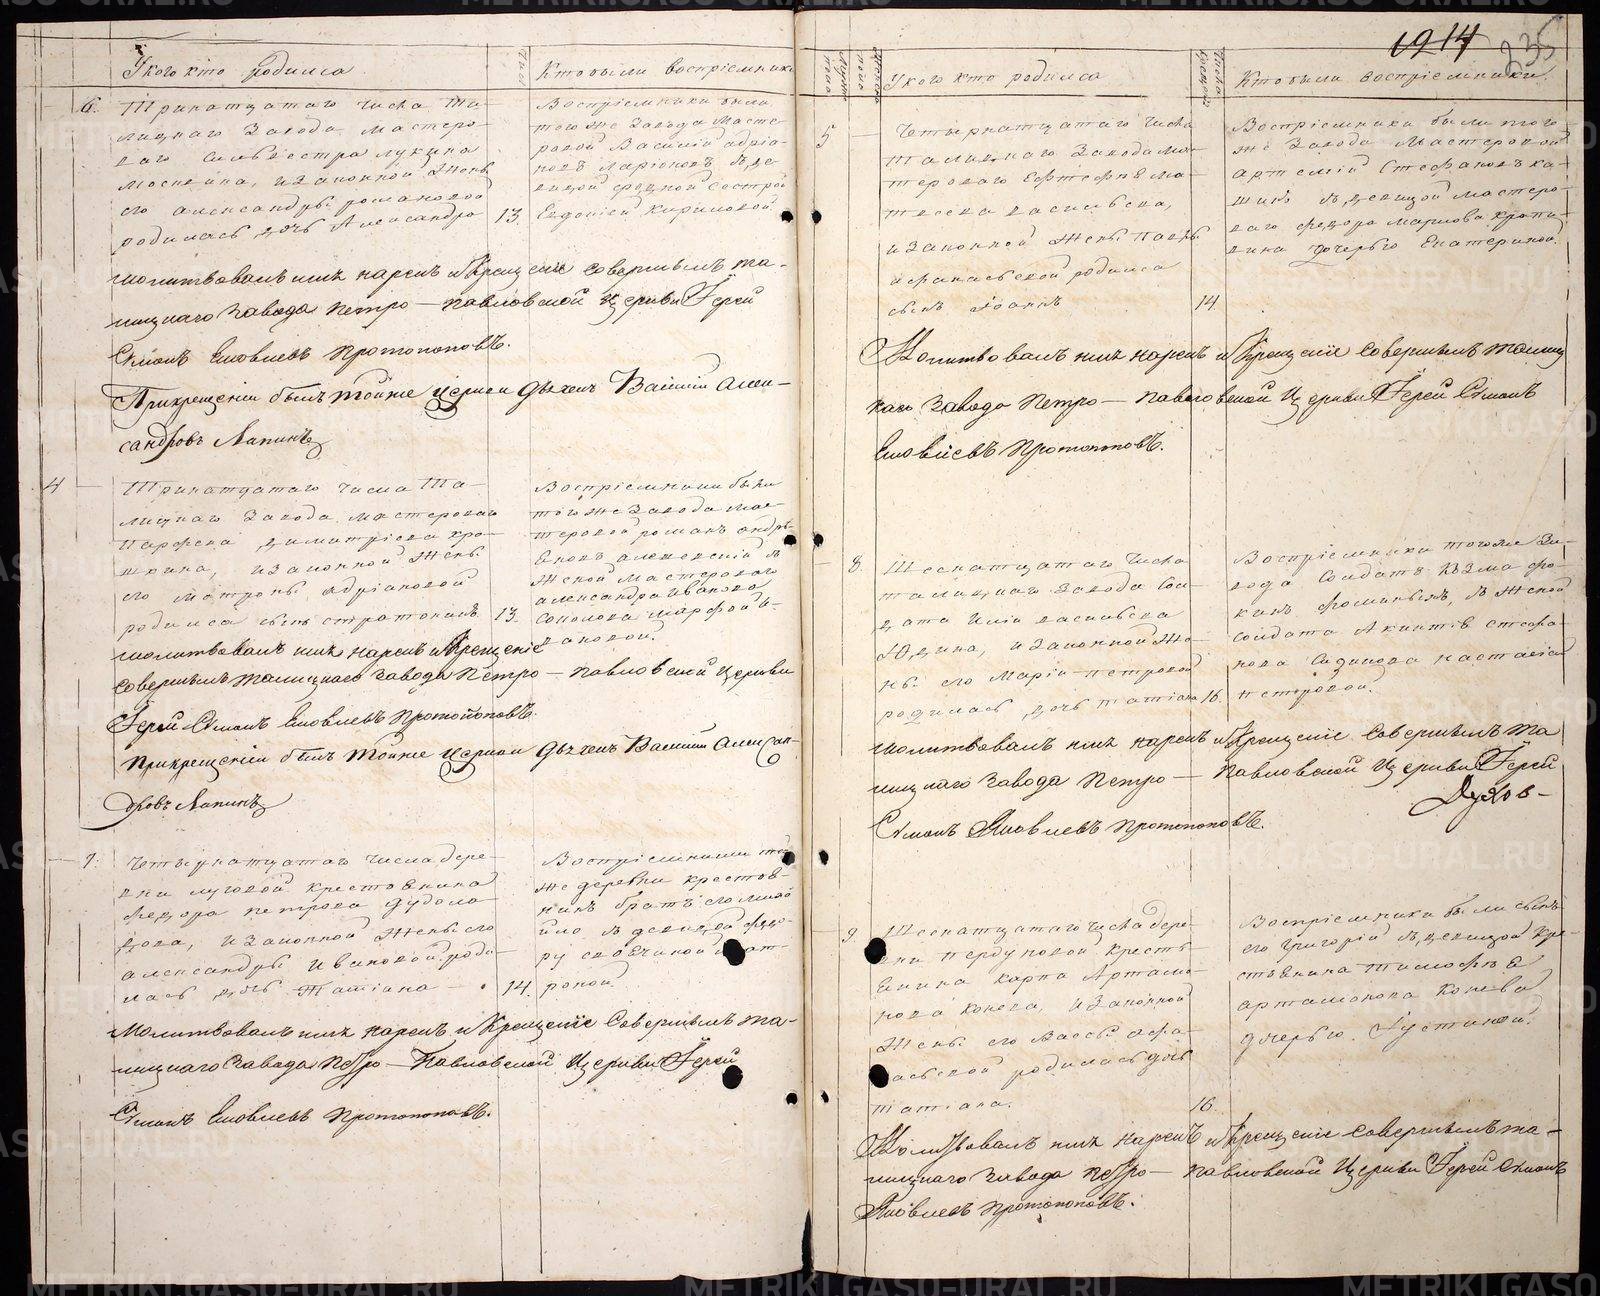 У кого кто родился
Кто были воспріемники
6. Тринатцатаго числа Та-
лицкаго завода мастеро-
ваго Сильвестра Лукина
Москвина, и законной жены
его Александры Романовой
родилась дочь Александра 13.
Воспріемники были
того же завода масте-
ровой Василій Адріа-
новъ Ларіоновъ съ де-
вицой родной сестрой
Евдокіей Кириловой
Молитвовалъ имя нарекъ и Крещеніе совершилъ та-
лицкаго завода Петро-павловской Церкви Іерей
Симонъ Яковлевъ Протопоповъ.
При крещеніи былъ той же церкви дьячекъ Василій Алек-
сандровъ Лапинъ
4
Тринатцатаго числа Та-
лицкаго завода мастероваго
Парфена Димитріева
и законной жены
его Матроны Адріановой
родился сынъ Стратоникъ 13.
Воспріемники были
того же завода мас-
теровой Романъ Андрѣ-
женой мастероваго
Александра Иванова
Соколова Марфой И-
вановой.
Молитвовалъ имя нарекъ и Крещеніе
совершилъ талицкаго завода Петро-павловской Церкви
Іерей Симонъ Яковлевъ Протопоповъ.
При крещеніи былъ той же церкви дьячекъ Василій Алексан-
дровъ Лапинъ
7. Четырнатцатаго числа дере-
вни луговой крестьянина
Федора Петрова
и законной жены его
Александры Ивановой роди-
лась дочь Татіана 14.
Воспріемники той
же деревни крестья-
нинъ братъ его
съ девицей
Молитвовалъ имя нарекъ и Крещеніе совершилъ та-
лицкаго завода Петро-Павловской Церкви Іерей
Симонъ Яковлевъ Протопоповъ.
1914 235
У кого кто родился
Кто были воспріемники.
5
Четырнатцатаго числа
Талицкаго завода ма-
стероваго Ефтефѣя Ма-
твеева Васильева,
и законной жены
Афанасьевой родился
сынъ Іоаннъ 14.
Воспріемники были того
же завода мастеровой
Артемій Стефановъ Ка-
шинъ съ девицой мастеро-
ваго Федора Маркова Кропи-
вина дочерью Екатериной.
Молитвовалъ имя нарекъ и Крещеніе совершилъ талиц
каго завода Петро-павловской Церкви Іерей Симонъ
Яковлевъ Протопоповъ.
8.
Шеснатцатаго числа
талицкаго завода Сол-
дата Иліи Васильева
Юдина, и законной же-
ны его Маріи Петровой
родилась дочь Татіана 16.
Воспріемники того же за-
вода Солдатъ Козма Фо-
кинъ съ женой
солдата Стефа-
нова Настасіей
Нестеровой.
Молитвовалъ имя нарекъ и Крещеніе совершилъ та
лицкаго завода Петро-павловской Церкви Іерей
Симонъ Яковлевъ Протопоповъ.
9. Шеснатцатаго числа дере-
вни Пердуновой кресть-
янина Карпа Артамо-
нова Конева, и законной
жены его Вассы Афа-
насьевой родилась дочь
татіана. 16.
Воспріемники были сынъ
его Григорій съ девицой кре-
стьянина Тимофѣя
Артамонова Конева
дочерью Іустиной.
Молитвовалъ имя нарекъ и Крещеніе совершилъ та-
лицкаго завода Петро-павловской Церкви Іерей Симонъ
Яковлевъ Протопоповъ.